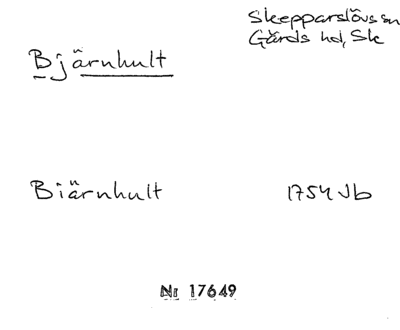 Skepparslövs sn
Gärds hd, Sk
Bjärnhult
Biärnhult 1754 Jb
Nr 17649